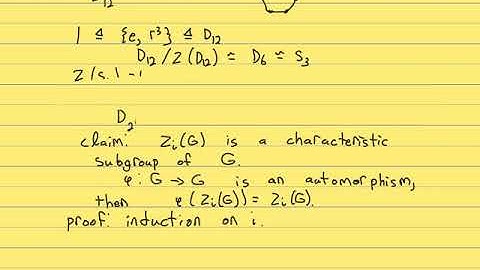 12
1 ⊴ {e, r³} ⊴ D₁₂
D₁₂ / Z(D₁₂) ≃ D₆ ≃ S₃
D₂
claim: Zᵢ(G) is a characteristic
subgroup of G.
φ: G → G is an automorphism,
then φ(Zᵢ(G)) = Zᵢ(G).
proof: induction on i.